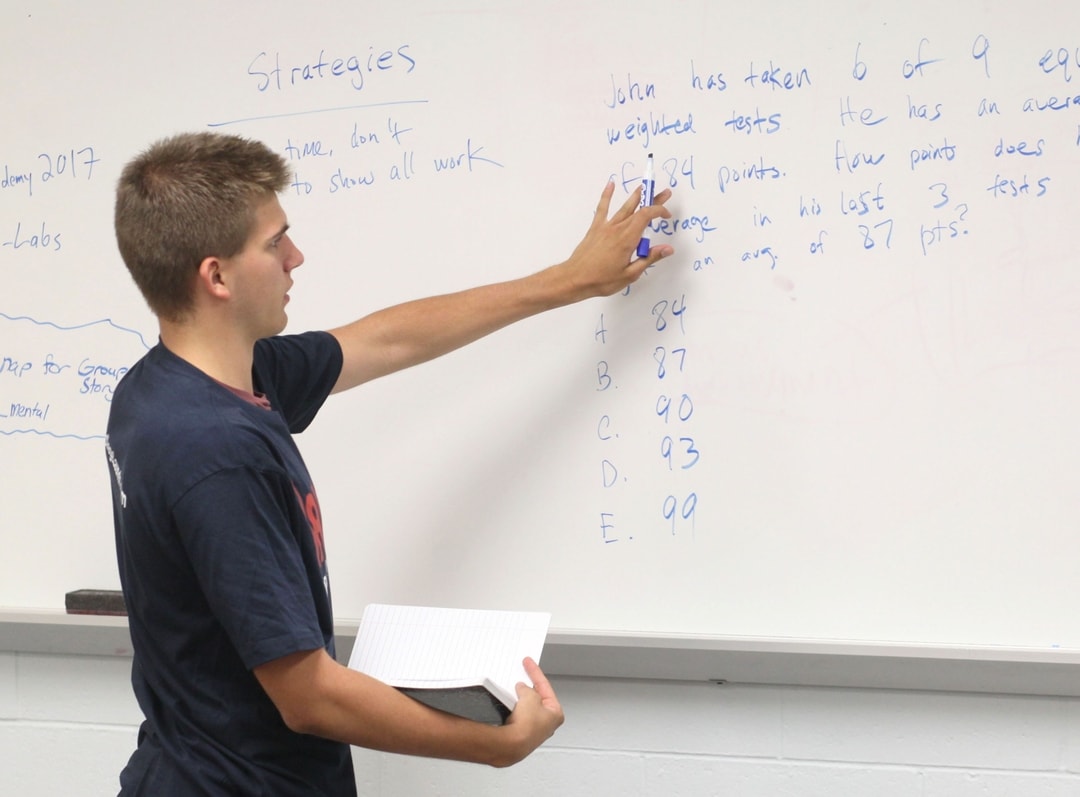 Strategies
time, don't
to show all work
2017
-Labs
map for Group
Story
mental
John has taken 6 of 9
weighted tests. He has an
of 84 points. How points does
in his last 3 tests
an avg. of 87 pts?
A 84
B. 87
C. 90
D. 93
E. 99